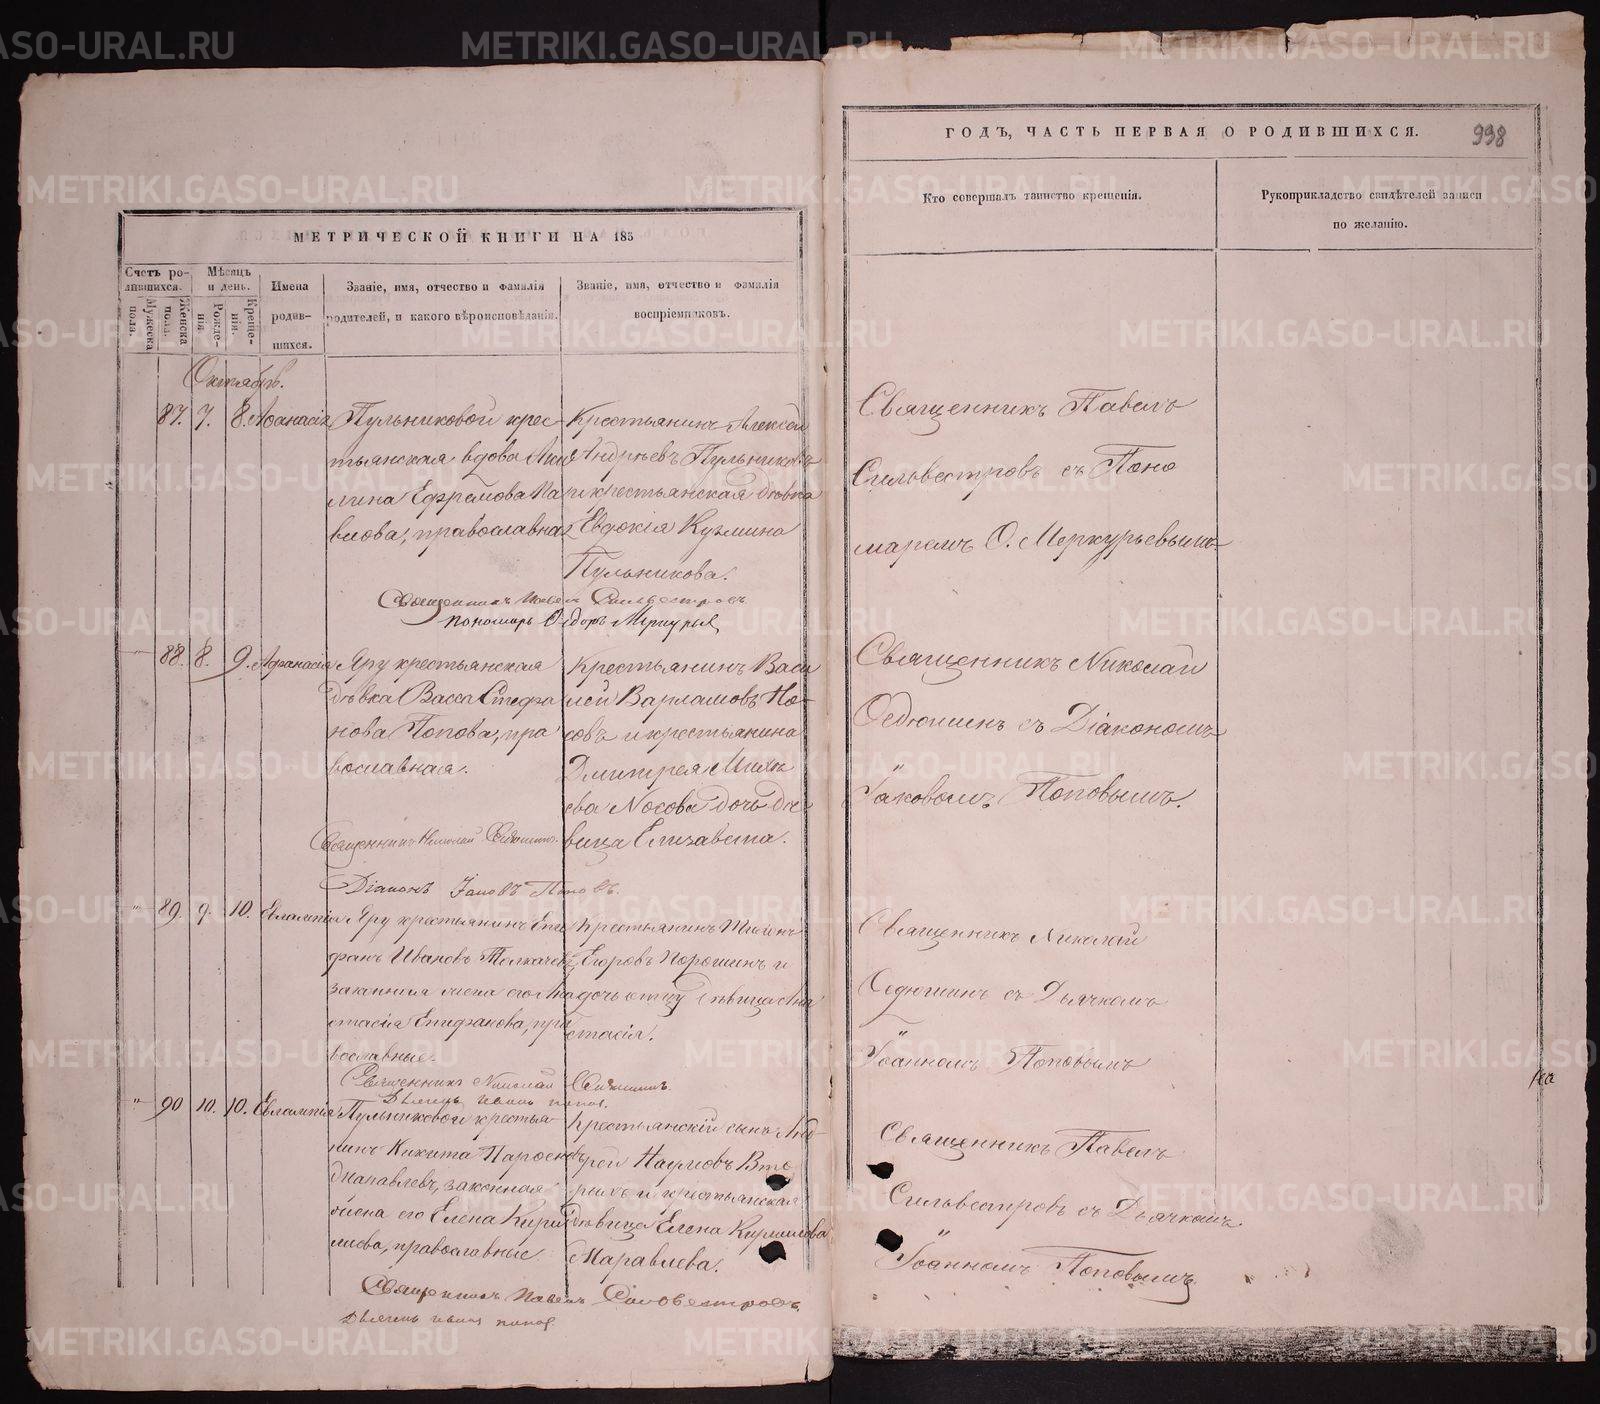 МЕТРИЧЕСКОЙ КНИГИ НА 185
Счетъ ро-
дившихся.
Мужеска
пола.
Женска
пола.
Мѣсяцъ
и день.
Рожде-
нія.
Креще-
нія.
Имена
родив-
шихся.
Званіе, имя, отчество и фамилія
родителей, и какого вѣроисповѣданія.
Званіе, имя, отчество и фамилія
воспріемниковъ.
Октябрь.
87. 7. 8. Афанасія
Пульниковой крес-
тьянская вдова Аки
лина Ефремова Па
влова, православная
Крестьянинъ Алексей
Андреевъ Пульниковъ
и крестьянская девка
Евдокія Кузмина
Пульникова.
Священникъ Павелъ Сильвестровъ
пономарь Ѳедоръ Меркурьев
88. 8. 9. Афанасія
Яру крестьянская
девка Васса Стефа
нова Попова, пра
вославная.
Крестьянинъ Васи
лей Варламовъ Но-
совъ и крестьянина
Дмитрея Михе
ева Носова дочь де
вица Елизавета.
Священникъ Николай Седюшинъ.
Діаконъ Іаковъ Поповъ.
89. 9. 10. Евлампія
Яру крестьянинъ Епи
фанъ Ивановъ Толкачевъ,
законная жена его Ана
стасія Епифанова, пра
вославные.
Крестьянинъ
Егоровъ Порошинъ и
дочь отцу девица Ана
стасія.
Священникъ Николай Седюшинъ.
Дьячекъ Иванъ Попов.
90 10. 10. Евлампія
Пульниковой крестья-
нинъ Никита Парфеновъ
Маравлевъ, законная
жена его Елена Кири
лова, православные.
Крестьянскій сынъ Анд-
рей Наумовъ Вто
рыхъ и крестьянская
девица Елена Кирилова
Маравлева.
Священникъ Павелъ Сильвестровъ
Дьячекъ Иванъ Попов.
ГОДЪ, ЧАСТЬ ПЕРВАЯ О РОДИВШИХСЯ.
998
Кто совершалъ таинство крещенія.
Рукоприкладство свидѣтелей записи
по желанію.
Священникъ Павелъ
Сильвестровъ съ Поно
маремъ Ѳ. Меркурьевымъ
Священникъ Николай
Седюшинъ съ Діакономъ
Іаковомъ Поповымъ.
Священникъ Николай
Седюшинъ съ Дьячкомъ
Іоанномъ Поповымъ
Священникъ Павелъ
Сильвестровъ съ Дьячкомъ
Іоанномъ Поповымъ
METRIKI.GASO-URAL.RU